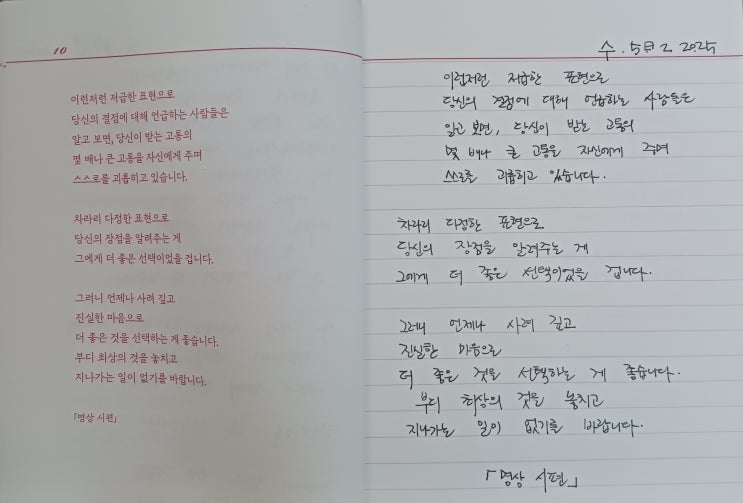 10
이런저런 저급한 표현으로
당신의 결점에 대해 언급하는 사람들은
알고 보면, 당신이 받는 고통의
몇 배나 큰 고통을 자신에게 주며
스스로를 괴롭히고 있습니다.
차라리 다정한 표현으로
당신의 장점을 알려주는 게
그에게 더 좋은 선택이었을 겁니다.
그러니 언제나 사려 깊고
진실한 마음으로
더 좋은 것을 선택하는 게 좋습니다.
부디 최상의 것을 놓치고
지나가는 일이 없기를 바랍니다.
「명상 시편」
수. 5日 2. 2025
이런저런 저급한 표현으로
당신의 결점에 대해 언급하는 사람들은
알고 보면, 당신이 받는 고통의
몇 배나 큰 고통을 자신에게 주며
쓰로를 괴롭히고 있습니다.
차라리 다정한 표현으로
당신의 장점을 알려주는 게
그에게 더 좋은 선택이었을 겁니다.
그러니 언제나 사려 깊고
진실한 마음으로
더 좋은 것을 선택하는 게 좋습니다.
부디 최상의 것을 놓치고
지나가는 일이 없기를 바랍니다.
「명상 시편」